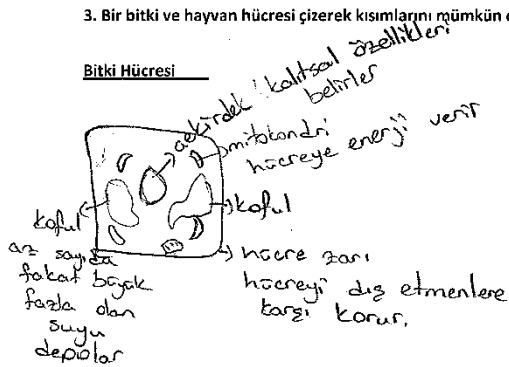 3. Bir bitki ve hayvan hücresi çizerek kısımlarını mümkün
Bitki Hücresi
çekirdek! kalıtsal özellikleri
belirler
mitokondri
hücreye enerji verir
koful
az sayıda
fakat büyük
fazla olan
suyu
depolar
koful
hücre zarı
hücreyi dış etmenlere
karşı korur.